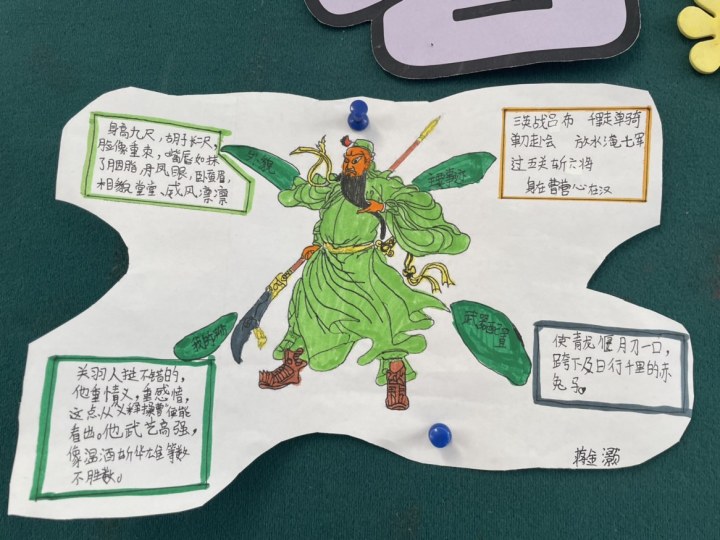 身高九尺，胡子长二尺，
脸像重枣，嘴唇如抹
了胭脂，丹凤眼，卧蚕眉，
相貌堂堂、威风凛凛
外貌
三英战吕布 千里走单骑
单刀赴会 放水淹七军
过五关斩六将
身在曹营心在汉
关羽人挺不错的，
他重情义，重感情，
这点从义释曹操便能
看出。他武艺高强，
像温酒斩华雄等数
不胜数。
使青龙偃月刀一口，
跨下及日行千里的赤
兔马。